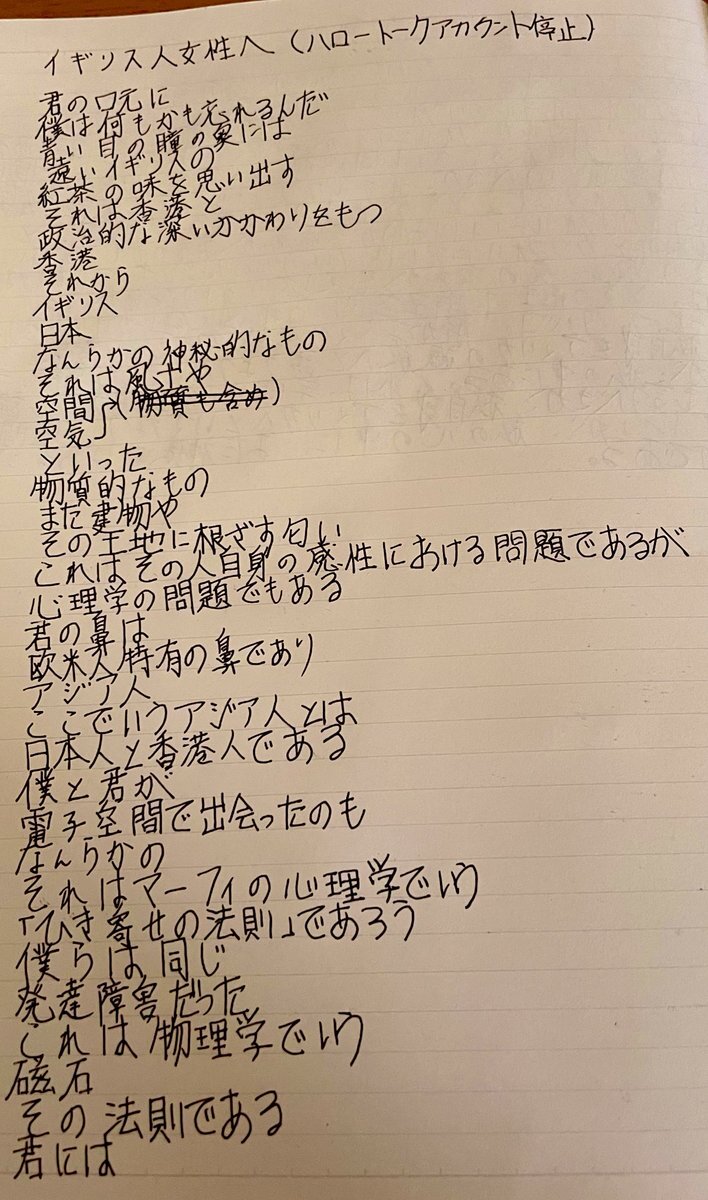 イギリス人女性へ（ハロートークアカウント停止）
君の口元に
僕は何もかも忘れるんだ
青い目の瞳の奥には
遠いイギリスの
紅茶の味を思い出す
それは香港と
政治的な深いかかわりをもつ
香港
それから
イギリス
日本
なんらかの神秘的なもの
それは風土や
空間（物質も含め）
空気
といった
物質的なもの
また建物や
その土地に根ざす匂い
これはその人自身の感性における問題であるが
心理学の問題でもある
君の鼻は
欧米人特有の鼻であり
アジア人
ここでいうアジア人とは
日本人と香港人である
僕と君が
電子空間で出会ったのも
なんらかの
それはマーフィの心理学でいう
「ひき寄せの法則」であろう
僕らは同じ
発達障害だった
これは物理学でいう
磁石
その法則である
君には